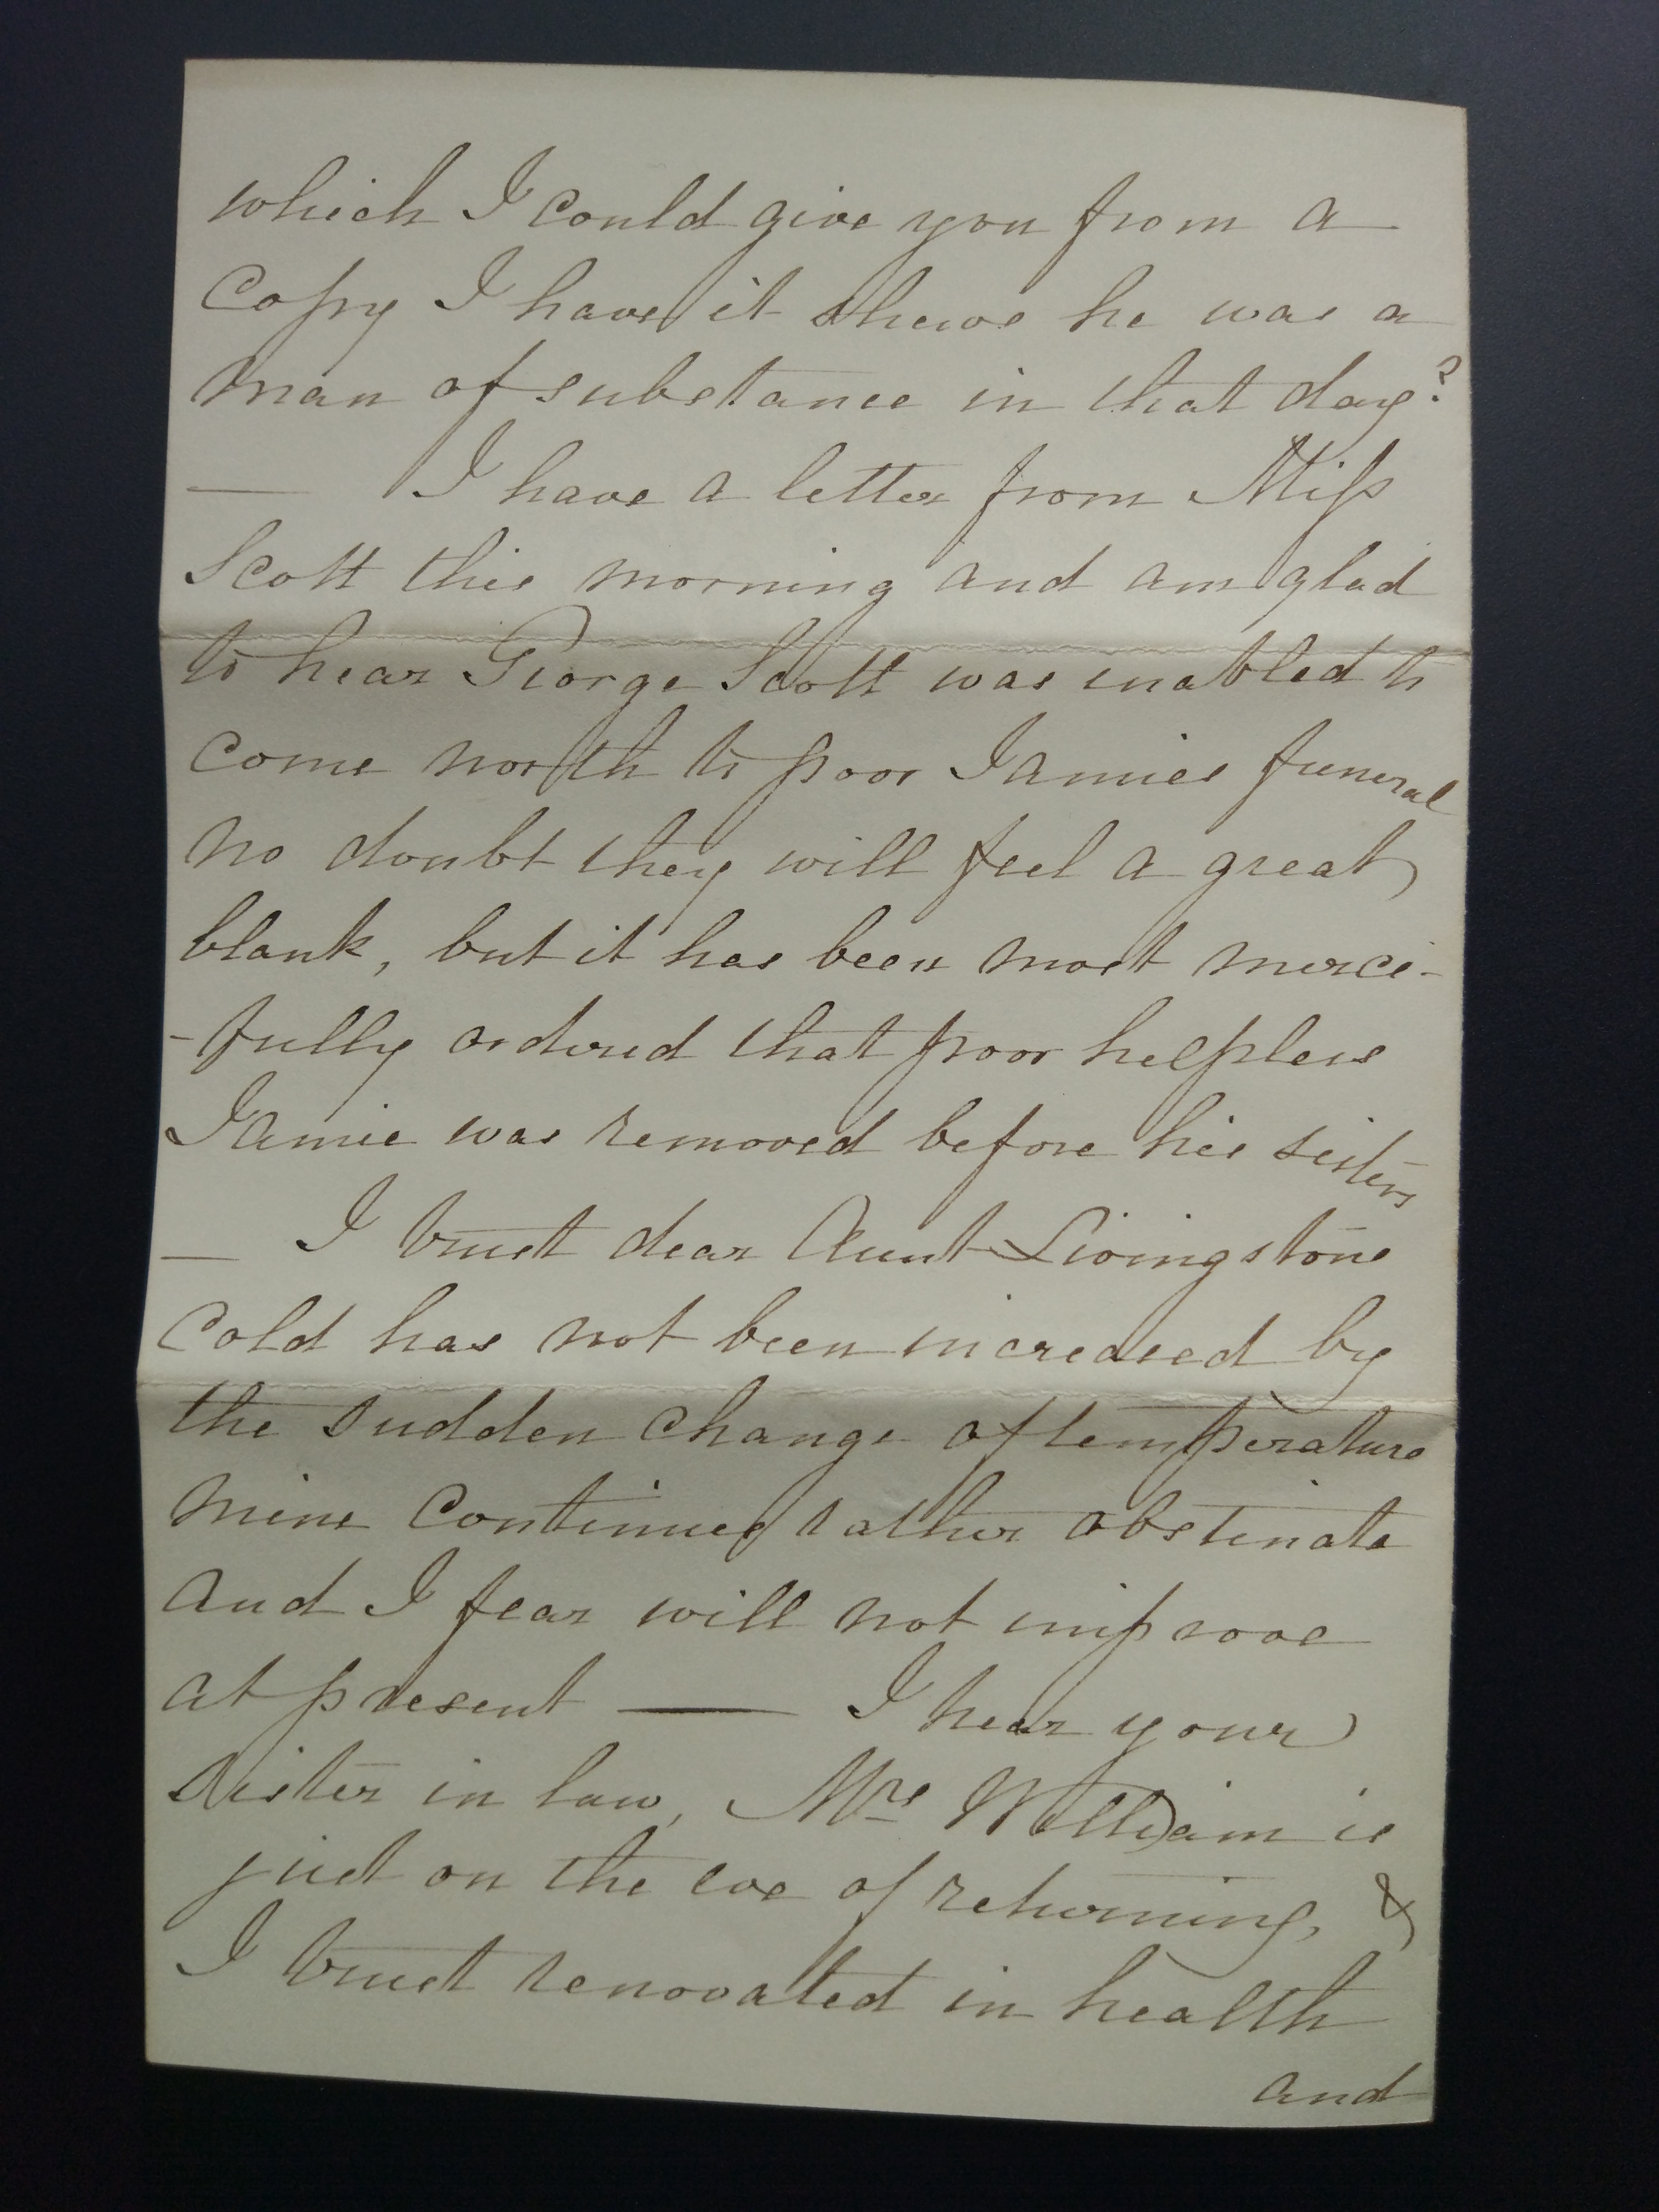 which I could give you from a
Copy I have it shews he was a
man of substance in that day?
— I have a letter from Miss
Scott this morning and am glad
to hear George Scott was enabled to
come north to poor Jamies funeral
no doubt they will feel a great
blank, but it has been most merci-
-fully ordered that poor helpless
Jamie was removed before his sisters
— I trust dear Aunt Livingstone
Cold has not been increased by
the sudden change of temperature
mine Continues rather obstinate
and I fear will not improve
at present — I hear your
sister in law, Mrs William is
just on the eve of returning, &
I trust renovated in health
and